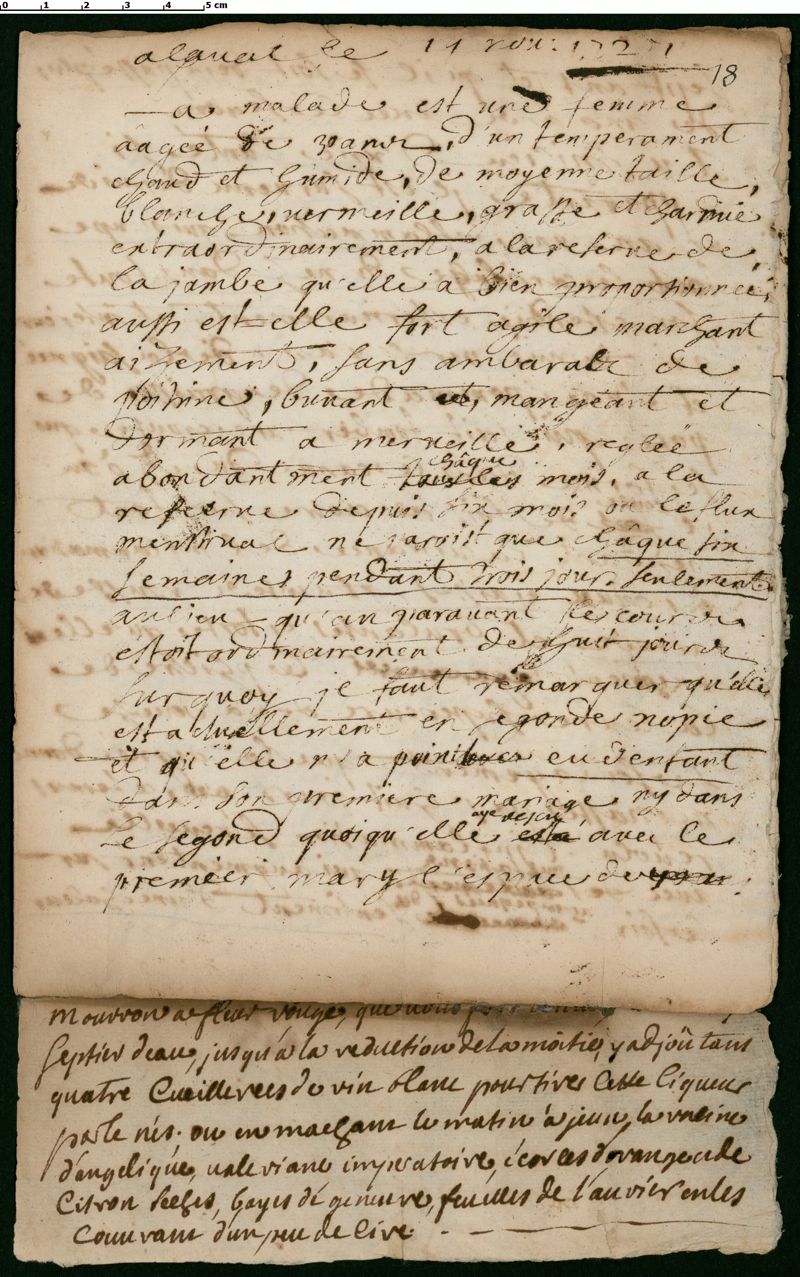 0 1 2 3 4 5 cm
alaval le 11 nov:
18
La malade est une femme
âagée de 30 ans, d'un temperament
chaud et humide, de moyenne taille,
blanche, vermeille, grasse et charnüe
extraordinairement, a la reserve de
la jambe qu'elle a bien proportionneé,
aussi est elle fort agile marchant
aisement, sans ambaras de
poitrine, buvant et, mangeant et
dormant a merveille, regleé
abondantment tous les châque mois, a la
reserve depuis six mois ou le flux
menstrual ne paroist que châque six
semaines pendant trois jour seulement
aulieu qu'au paravant les cours
estoit ordinairement de huit jours
surquoy je faut remarquer qu'elle
est actuellement en segonde nopce
et qu'elle n'a point eu d'enfant
dans son premiere mariage ny dans
le segond quoiqu'elle aye avec le
premier mary l'espace de
mourron a fleur rouge, que nous
septier deau, jusqu'a la reduction de la moitie, y adjoûtant
quatre Cueillerees de vin blanc pour tirer cette liqueur
par le nés. ou en machant le matin a jeun la racine
d'angelique, valeriane imperatoire, écorces d'orange et de
Citron seches, bayes de genevre, feuilles de l'auvier en les
Couvrant d'un peu de cire.